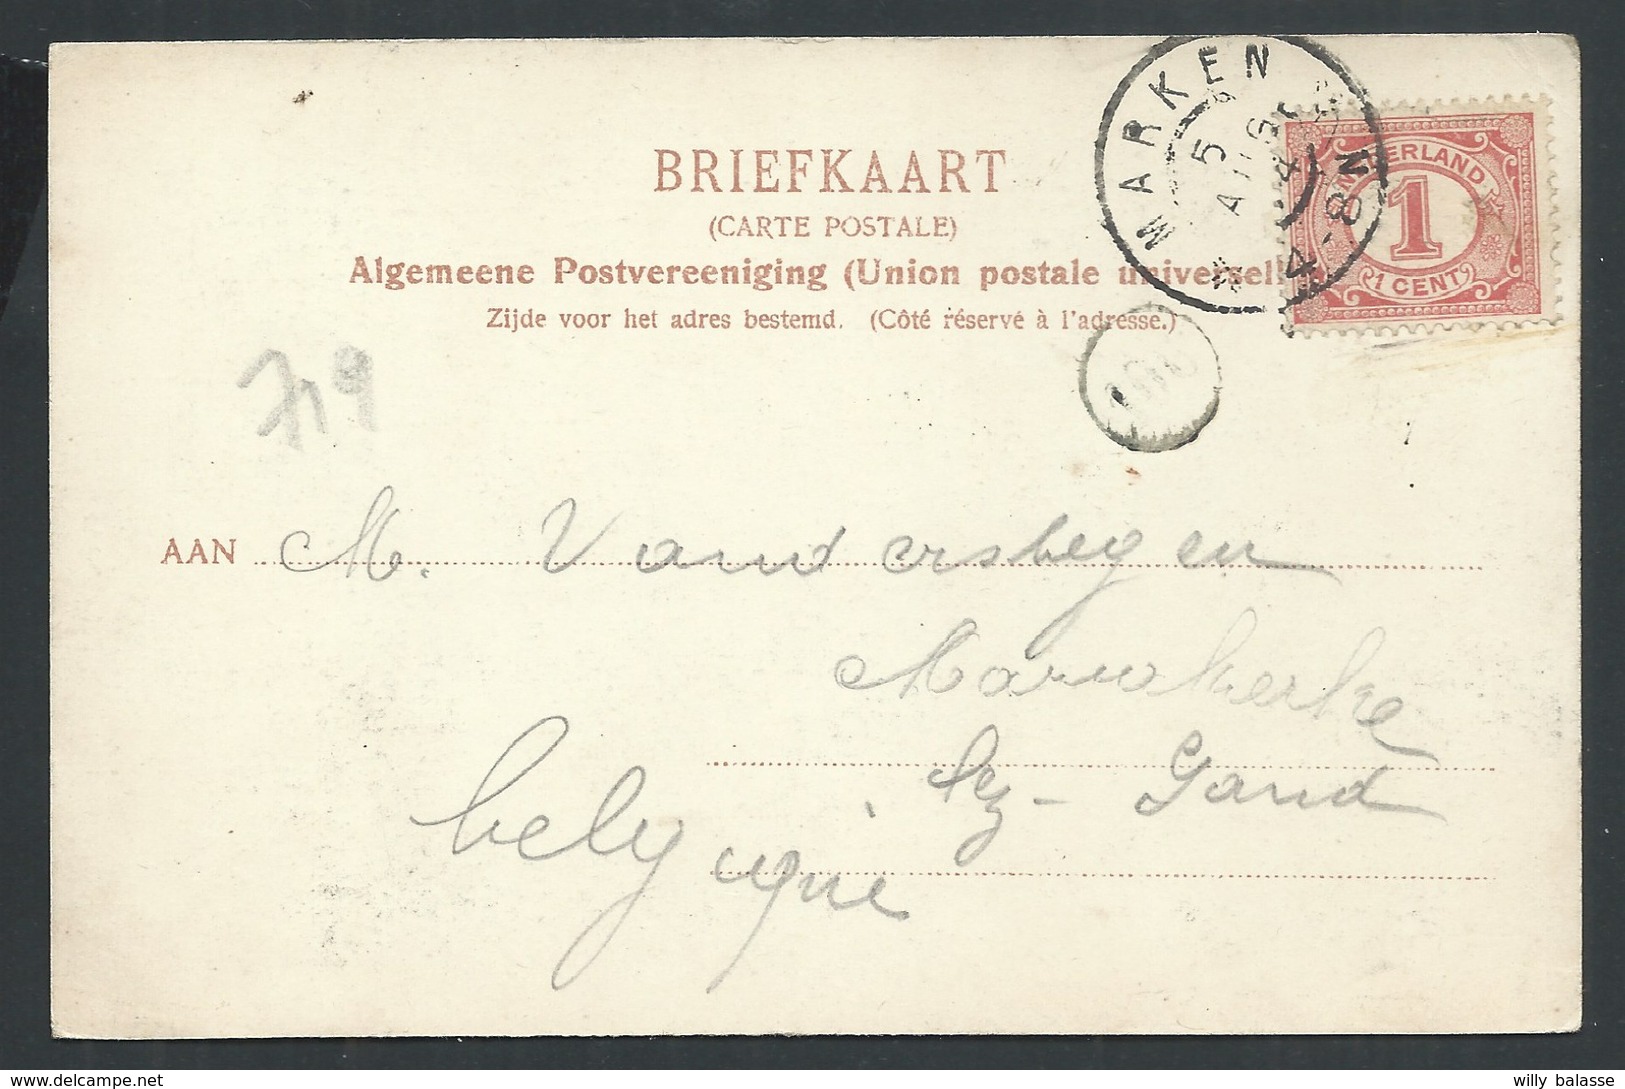 MARKEN
5 AUG
4-8N
NEDERLAND
1
1 CENT
BRIEFKAART
(CARTE POSTALE)
Algemeene Postvereeniging (Union postale universell
Zijde voor het adres bestemd. (Côté réservé à l'adresse.)
719
AAN M. Vandersteygen
Mariakerke
lez - Gand
belgique
willy balasse